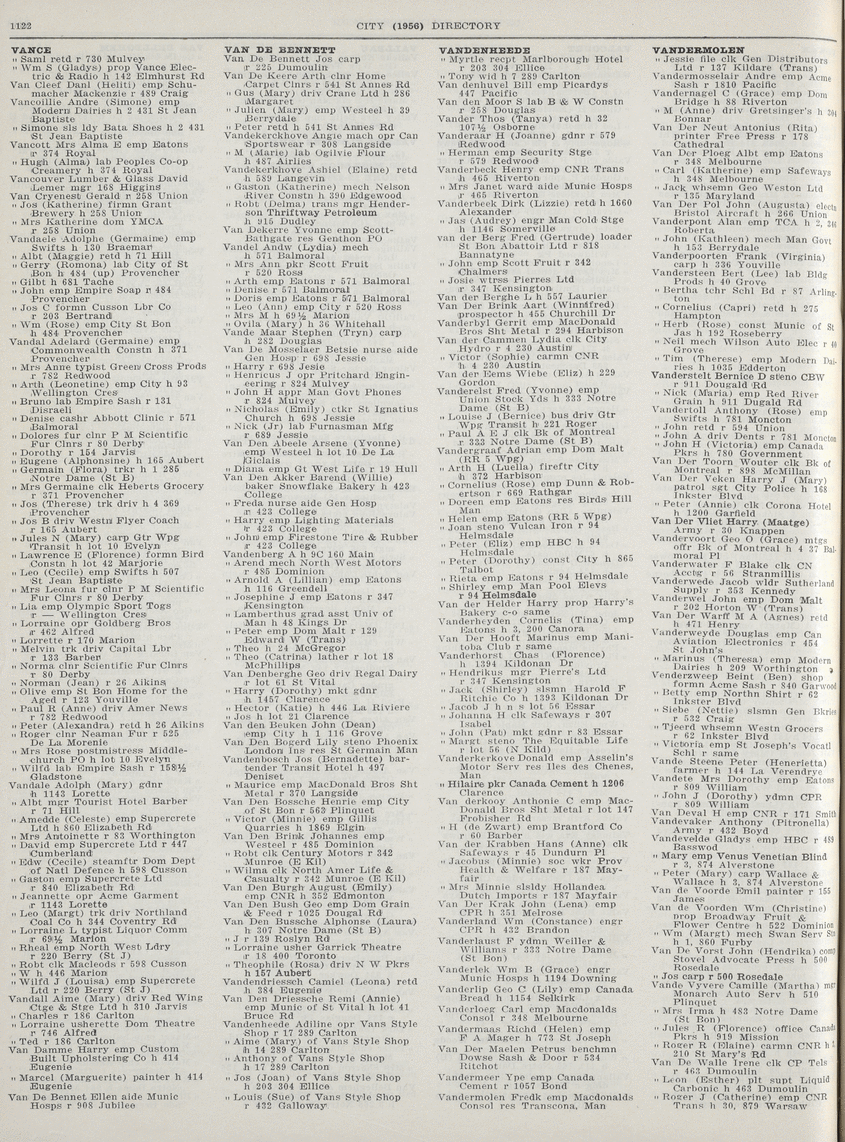 1122
CITY (1956) DIRECTORY
VANCE
" Saml retd r 730 Mulvey
" Wm S (Gladys) prop Vance Elec-
tric & Radio h 142 Elmhurst Rd
Van Cleef Danl (Heliti) emp Schu-
macher Mackenzie r 489 Craig
Vancoillie Andre (Simone) emp
Modern Dairies h 2 431 St Jean
Baptiste
" Simone sls ldy Bata Shoes h 2 431
St Jean Baptiste
Vancott Mrs Alma E emp Eatons
r 374 Royal
" Hugh (Alma) lab Peoples Co-op
Creamery h 374 Royal
Vancouver Lumber & Glass David
Lemer mgr 168 Higgins
Van Cryenest Gerald r 258 Union
" Jos (Katherine) firmn Grant
Brewery h 258 Union
" Mrs Katherine dom YMCA
r 258 Union
Vandaele Adolphe (Germaine) emp
Swifts h 130 Braemar
" Albt (Maggie) retd h 71 Hill
" Gerry (Romona) lab City of St
Bon h 484 (up) Provencher
" Gilbt h 681 Tache
" John emp Empire Soap r 484
Provencher
" Jos C formn Cusson Lbr Co
r 203 Bertrand
" Wm (Rose) emp City St Bon
h 484 Provencher
Vandal Adelard (Germaine) emp
Commonwealth Constn h 371
Provencher
" Mrs Anne typist Green Cross Prods
r 782 Redwood
" Arth (Leonetine) emp City h 93
Wellington Cres
" Bruno lab Empire Sash r 131
Disraeli
" Denise cashr Abbott Clinic r 571
Balmoral
" Dolores fur clnr P M Scientific
Fur Clnrs r 80 Derby
" Dorothy r 154 Jarvis
" Eugene (Alphonsine) h 165 Aubert
" Germain (Flora) trkr h 1 285
Notre Dame (St B)
" Mrs Germaine clk Heberts Grocery
r 371 Provencher
" Jos (Therese) trk driv h 4 369
Provencher
" Jos B driv Westn Flyer Coach
r 165 Aubert
" Jules N (Mary) carp Gtr Wpg
Transit h lot 10 Evelyn
" Lawrence E (Florence) formn Bird
Constn h lot 42 Marjorie
" Leo (Cecile) emp Swifts h 507
St Jean Baptiste
" Mrs Leona fur clnr P M Scientific
Fur Clnrs r 80 Derby
" Lia emp Olympic Sport Togs
r — Wellington Cres
" Lorraine opr Goldberg Bros
r 462 Alfred
" Lorrette r 170 Marion
" Melvin trk driv Capital Lbr
r 133 Barber
" Norma clnr Scientific Fur Clnrs
r 80 Derby
" Norman (Jean) r 26 Aikins
" Olive emp St Bon Home for the
Aged r 123 Youville
" Paul R (Anne) driv Amer News
r 782 Redwood
" Peter (Alexandra) retd h 26 Aikins
" Roger clnr Neaman Fur r 525
De La Morenie
" Mrs Rose postmistress Middle-
church PO h lot 10 Evelyn
" Wilfd lab Empire Sash r 158½
Gladstone
Vandale Adolph (Mary) gdnr
h 1143 Lorette
" Albt mgr Tourist Hotel Barber
r 71 Hill
" Amedde (Celeste) emp Supercrete
Ltd h 860 Elizabeth Rd
" Mrs Antoinette r 83 Worthington
" David emp Supercrete Ltd r 447
Cumberland
" Edw (Cecile) steamftr Dom Dept
of Natl Defence h 598 Cusson
" Gaston emp Supercrete Ltd
r 840 Elizabeth Rd
" Jeannette opr Acme Garment
r 1143 Lorette
" Leo (Margt) trk driv Northland
Coal Co h 344 Coventry Rd
" Lorraine L typist Liquor Comm
r 69½ Marion
" Rheal emp North West Ldry
r 220 Berry (St J)
" Robt clk Macleods r 598 Cusson
" W h 446 Marion
" Wilfd J (Louisa) emp Supercrete
Ltd r 220 Berry (St J)
Vandall Aime (Mary) driv Red Wing
Ctge & Stge Ltd h 310 Jarvis
" Charles r 186 Carlton
" Lorraine usherette Dom Theatre
r 746 Alfred
" Ted r 186 Carlton
Van Damme Harry emp Custom
Built Upholstering Co h 414
Eugenie
" Marcel (Marguerite) painter h 414
Eugenie
Van De Bennet Ellen aide Munic
Hosps r 908 Jubilee
VAN DE BENNETT
Van De Bennett Jos carp
r 225 Dumoulin
Van De Keere Arth clnr Home
Carpet Clnrs r 541 St Annes Rd
" Gus (Mary) driv Crane Ltd h 286
Margaret
" Julien (Mary) emp Westeel h 39
Berrydale
" Peter retd h 541 St Annes Rd
Vandekerckhove Angie mach opr Can
Sportswear r 308 Langside
" M (Marie) lab Ogilvie Flour
h 487 Airlies
Vandekerkhove Ashiel (Elaine) retd
h 589 Langevin
" Gaston (Katherine) mech Nelson
River Constn h 390 Edgewood
" Robt (Delma) trans mgr Hender-
son Thriftway Petroleum
h 915 Dudley
Van Dekerre Yvonne emp Scott-
Bathgate res Genthon PO
Vandel Andw (Lydia) mech
h 571 Balmoral
" Mrs Ann pkr Scott Fruit
r 520 Ross
" Arth emp Eatons r 571 Balmoral
" Denise r 571 Balmoral
" Doris emp Eatons r 571 Balmoral
" Leo (Ann) emp City r 520 Ross
" Mrs M h 69½ Marion
" Ovila (Mary) h 36 Whitehall
Vande Maar Stephen (Tryn) carp
h 282 Douglas
Van De Mosselaer Betsie nurse aide
Gen Hosp r 698 Jessie
" Harry r 698 Jesie
" Henricus J opr Pritchard Engin-
eering r 824 Mulvey
" John H appr Man Govt Phones
r 824 Mulvey
" Nicholas (Emily) ctkr St Ignatius
Church h 698 Jessie
" Nick (Jr) lab Furnasman Mfg
r 689 Jessie
Van Den Abeele Arsene (Yvonne)
emp Westeel h lot 10 De La
Giclais
" Diana emp Gt West Life r 19 Hull
Van Den Akker Barend (Willie)
baker Snowflake Bakery h 423
College
" Freda nurse aide Gen Hosp
r 423 College
" Harry emp Lighting Materials
r 423 College
" John emp Firestone Tire & Rubber
r 423 College
Vandenberg A h 9C 160 Main
" Arend mech North West Motors
r 485 Dominion
" Arnold A (Lillian) emp Eatons
h 116 Greendell
" Josephine J emp Eatons r 347
Kensington
" Lamberthus grad asst Univ of
Man h 48 Kings Dr
" Peter emp Dom Malt r 129
Edward W (Trans)
" Theo h 24 McGregor
" Theo (Catrina) lather r lot 18
McPhillips
Van Denberghe Geo driv Regal Dairy
r lot 61 St Vital
" Harry (Dorothy) mkt gdnr
h 1457 Clarence
" Hector (Katie) h 446 La Riviere
" Jos h lot 21 Clarence
Van den Beuken John (Dean)
emp City h 1 116 Grove
Van Den Bogerd Lily steno Phoenix
London Ins res St Germain Man
Vandenbosch Jos (Bernadette) bar-
tender Transit Hotel h 497
Deniset
" Maurice emp MacDonald Bros Sht
Metal r 370 Langside
Van Den Bossche Henrie emp City
of St Bon r 562 Plinquet
" Victor (Minnie) emp Gillis
Quarries h 1869 Elgin
Van Den Brink Johannes emp
Westeel r 485 Dominion
" Robt clk Century Motors r 342
Munroe (E Kil)
" Wilma clk North Amer Life &
Casualty r 342 Munroe (E Kil)
Van Den Burgh August (Emily)
emp CNR h 352 Edmonton
Van Den Bush Geo emp Dom Grain
& Feed r 1025 Dougal Rd
Van Den Bussche Alphonse (Laura)
h 307 Notre Dame (St B)
" J r 139 Roslyn Rd
" Lorraine usher Garrick Theatre
r 18 400 Toronto
" Theophile (Rosa) driv N W Pkrs
h 157 Aubert
Vandendriessch Camiel (Leona) retd
h 384 Eugenie
Van Den Driessche Remi (Annie)
emp Munic of St Vital h lot 41
Bruce Rd
Vandenheede Adiline opr Vans Style
Shop r 17 289 Carlton
" Aime (Mary) of Vans Style Shop
h 14 289 Carlton
" Anthony of Vans Style Shop
h 17 289 Carlton
" Jos (Joan) of Vans Style Shop
h 203 304 Ellice
" Louis (Sue) of Vans Style Shop
r 432 Galloway
VANDENHEEDE
" Myrtle recpt Marlborough Hotel
r 203 304 Ellice
" Tony wid h 7 289 Carlton
Van denhuvel Bill emp Picardys
447 Pacific
Van den Moor S lab B & W Constn
r 258 Douglas
Vander Thos (Tanya) retd h 32
107½ Osborne
Vanderaar H (Joanne) gdnr r 579
Redwood
" Herman emp Security Stge
r 579 Redwood
Vanderbeck Henry emp CNR Trans
h 465 Riverton
" Mrs Janet ward aide Munic Hosps
r 465 Riverton
Vanderbeek Dirk (Lizzie) retd h 1660
Alexander
" Jas (Audrey) engr Man Cold Stge
h 1146 Somerville
van der Berg Fred (Gertrude) loader
St Bon Abattoir Ltd r 818
Bannatyne
" John emp Scott Fruit r 342
Chalmers
" Josie wtrss Pierres Ltd
r 347 Kensington
Van der Berghe L h 557 Laurier
Van Der Brink Aart (Winnifred)
prospector h 455 Churchill Dr
Vanderbyl Gerrit emp MacDonald
Bros Sht Metal r 294 Harbison
Van der Cammen Lydia clk City
Hydro r 4 230 Austin
" Victor (Sophie) carmn CNR
h 4 230 Austin
Van der Eems Wiebe (Eliz) h 229
Gordon
Vanderelst Fred (Yvonne) emp
Union Stock Yds h 333 Notre
Dame (St B)
" Louise J (Bernice) bus driv Gtr
Wpg Transit h 221 Roger
" Paul A E J clk Bk of Montreal
r 333 Notre Dame (St B)
Vandergraaf Adrian emp Dom Malt
(RR 5 Wpg)
" Arth H (Luella) fireftr City
h 372 Harbison
" Cornelius (Rose) emp Dunn & Rob-
ertson r 669 Rathgar
" Doreen emp Eatons res Birds Hill
Man
" Helen emp Eatons (RR 5 Wpg)
" Joan steno Vulcan Iron r 94
Helmsdale
" Peter (Eliz) emp HBC h 94
Helmsdale
" Peter (Dorothy) const City h 865
Talbot
" Rieta emp Eatons r 94 Helmsdale
" Shirley emp Man Pool Elevs
r 94 Helmsdale
Van der Helder Harry prop Harry's
Bakery c-o same
Vanderheyden Cornelis (Tina) emp
Eatons h 3, 200 Canora
Van Der Hooft Marinus emp Mani-
toba Club r same
Vanderhorst Chas (Florence)
h 1394 Kildonan Dr
" Hendrikus mgr Pierre's Ltd
r 347 Kensington
" Jack (Shirley) slsmn Harold F
Ritchie Co h 1393 Kildonan Dr
" Jacob J h n s lot 56 Essar
" Johanna H clk Safeways r 307
Isabel
" John (Pat) mkt gdnr r 83 Essar
" Margt steno The Equitable Life
r lot 56 (N Kild)
Vanderkerkove Donald emp Asselin's
Motor Serv res Iles des Chenes,
Man
" Hilaire pkr Canada Cement h 1206
Clarence
Van derkooy Anthonie C emp Mac-
Donald Bros Sht Metal r lot 147
Frobisher Rd
" H (de Zwart) emp Brantford Co
r 60 Barber
Van der Krabben Hans (Anne) clk
Safeways r 45 Dundurn Pl
" Jacobus (Minnie) soc wkr Prov
Health & Welfare r 187 May-
fair
" Mrs Minnie slsldy Hollandea
Dutch Imports r 187 Mayfair
Van Der Krak John (Lena) emp
CPR h 351 Melrose
Vanderland Wm (Constance) engr
CPR h 432 Brandon
Vanderlaust F ydmn Weiller &
Williams r 333 Notre Dame
(St Bon)
Vanderlek Wm B (Grace) engr
Munic Hosps h 1194 Downing
Vanderlip Geo C (Lily) emp Canada
Bread h 1154 Selkirk
Vanderloeg Carl emp Macdonalds
Consol r 348 Melbourne
Vandermaas Richd (Helen) emp
F A Mager h 773 St Joseph
Van Der Maelen Petrus benchmn
Dowse Sash & Door r 534
Ritchot
Vandermeer Ype emp Canada
Cement r 1057 Bond
Vandermolen Fredk emp Macdonalds
Consol res Transcona, Man
VANDERMOLEN
" Jessie file clk Gen Distributors
Ltd r 137 Kildare (Trans)
Vandermosselair Andre emp Acme
Sash r 1810 Pacific
Vandernagel C (Grace) emp Dom
Bridge h 88 Riverton
" M (Anne) driv Gretsinger's h 304
Bonnar
Van Der Neut Antonius (Rita)
printer Free Press r 178
Cathedral
Van Der Ploeg Albt emp Eatons
r 348 Melbourne
" Carl (Katherine) emp Safeways
h 348 Melbourne
" Jack whsemn Geo Weston Ltd
r 135 Maryland
Van Der Pol John (Augusta) electn
Bristol Aircraft h 266 Union
Vanderpont Alan emp TCA h 2,
Roberta
" John (Kathleen) mech Man Govt
h 153 Berrydale
Vanderpoorten Frank (Virginia)
carp h 336 Youville
Vandersteen Bert (Lee) lab Bldg
Prods h 40 Grove
" Bertha tchr Schl Bd r 87 Arling-
ton
" Cornelius (Capri) retd h 275
Hampton
" Herb (Rose) const Munic of St
Jas h 192 Roseberry
" Neil mech Wilson Auto Elec r 40
Grove
" Tim (Therese) emp Modern Dai-
ries h 1035 Edderton
Vanderstelt Bernice D steno CBW
r 911 Dougald Rd
" Nick (Maria) emp Red River
Grain h 911 Dugald Rd
Vandertoll Anthony (Rose) emp
Swifts h 781 Moncton
" John retd r 594 Union
" John A driv Dents r 781 Moncton
" John H (Victoria) emp Canada
Pkrs h 780 Government
Van Der Toorn Wouter clk Bk of
Montreal r 898 McMillan
Van Der Veken Harry J (Mary)
patrol sgt City Police h 168
Inkster Blvd
" Peter (Annie) clk Corona Hotel
h 1200 Garfield
Van Der Vliet Harry (Maatge)
Army r 30 Knappen
Vandervoort Geo O (Grace) mtgs
offr Bk of Montreal h 4 37 Bal-
moral Pl
Vanderwater F Blake clk CN
Acctg r 56 Stranmillis
Vanderwede Jacob wldr Sutherland
Supply r 353 Kennedy
Vanderwel John emp Dom Malt
r 202 Horton W (Trans)
Van Der Warff M A (Agnes) retd
h 471 Henry
Vanderweyde Douglas emp Can
Aviation Electronics r 454
St John's
" Marinus (Theresa) emp Modern
Dairies h 209 Worthington
Venderzweep Beint (Ben) shop
formn Acme Sash r 840 Garwood
" Betty emp Northn Shirt r 62
Inkster Blvd
" Siebe (Nettie) slsmn Gen Bkries
r 532 Craig
" Tjeerd whsemn Westn Grocers
r 62 Inkster Blvd
" Victoria emp St Joseph's Vocatl
Schl r same
Vande Steene Peter (Henerietta)
farmer h 144 La Verendrye
Vandete Mrs Dorothy emp Eatons
r 809 William
" John J (Dorothy) ydmn CPR
r 809 William
Van Deval H emp CNR r 171 Smith
Vandevaker Anthony (Pitronella)
Army r 432 Boyd
Vandevelde Gladys emp HBC r 489
Basswod
" Mary emp Venus Venetian Blind
r 3, 874 Alverstone
" Peter (Mary) carp Wallace &
Wallace h 3, 874 Alverstone
Van de Voorde Emil painter r 155
James
Van de Voorden Wm (Christine)
prop Broadway Fruit &
Flower Centre h 522 Dominion
" Wm (Margt) mech Swan Serv Stn
h 1, 860 Furby
Van De Vorst John (Hendrika) comp
Stovel Advocate Press h 500
Rosedale
" Jos carp r 500 Rosedale
Vande Vyvere Camille (Martha) mgr
Monarch Auto Serv h 510
Plinquet
" Mrs Irma h 483 Notre Dame
(St Bon)
" Jules R (Florence) office Canada
Pkrs h 919 Mission
" Roger R (Elaine) carmn CNR h
210 St Mary's Rd
Van De Walle Irene clk CP Tels
r 463 Dumoulin
" Leon (Esther) plt supt Liquid
Carbonic h 463 Dumoulin
" Roger J (Catherine) emp CNR
Trans h 30, 879 Warsaw